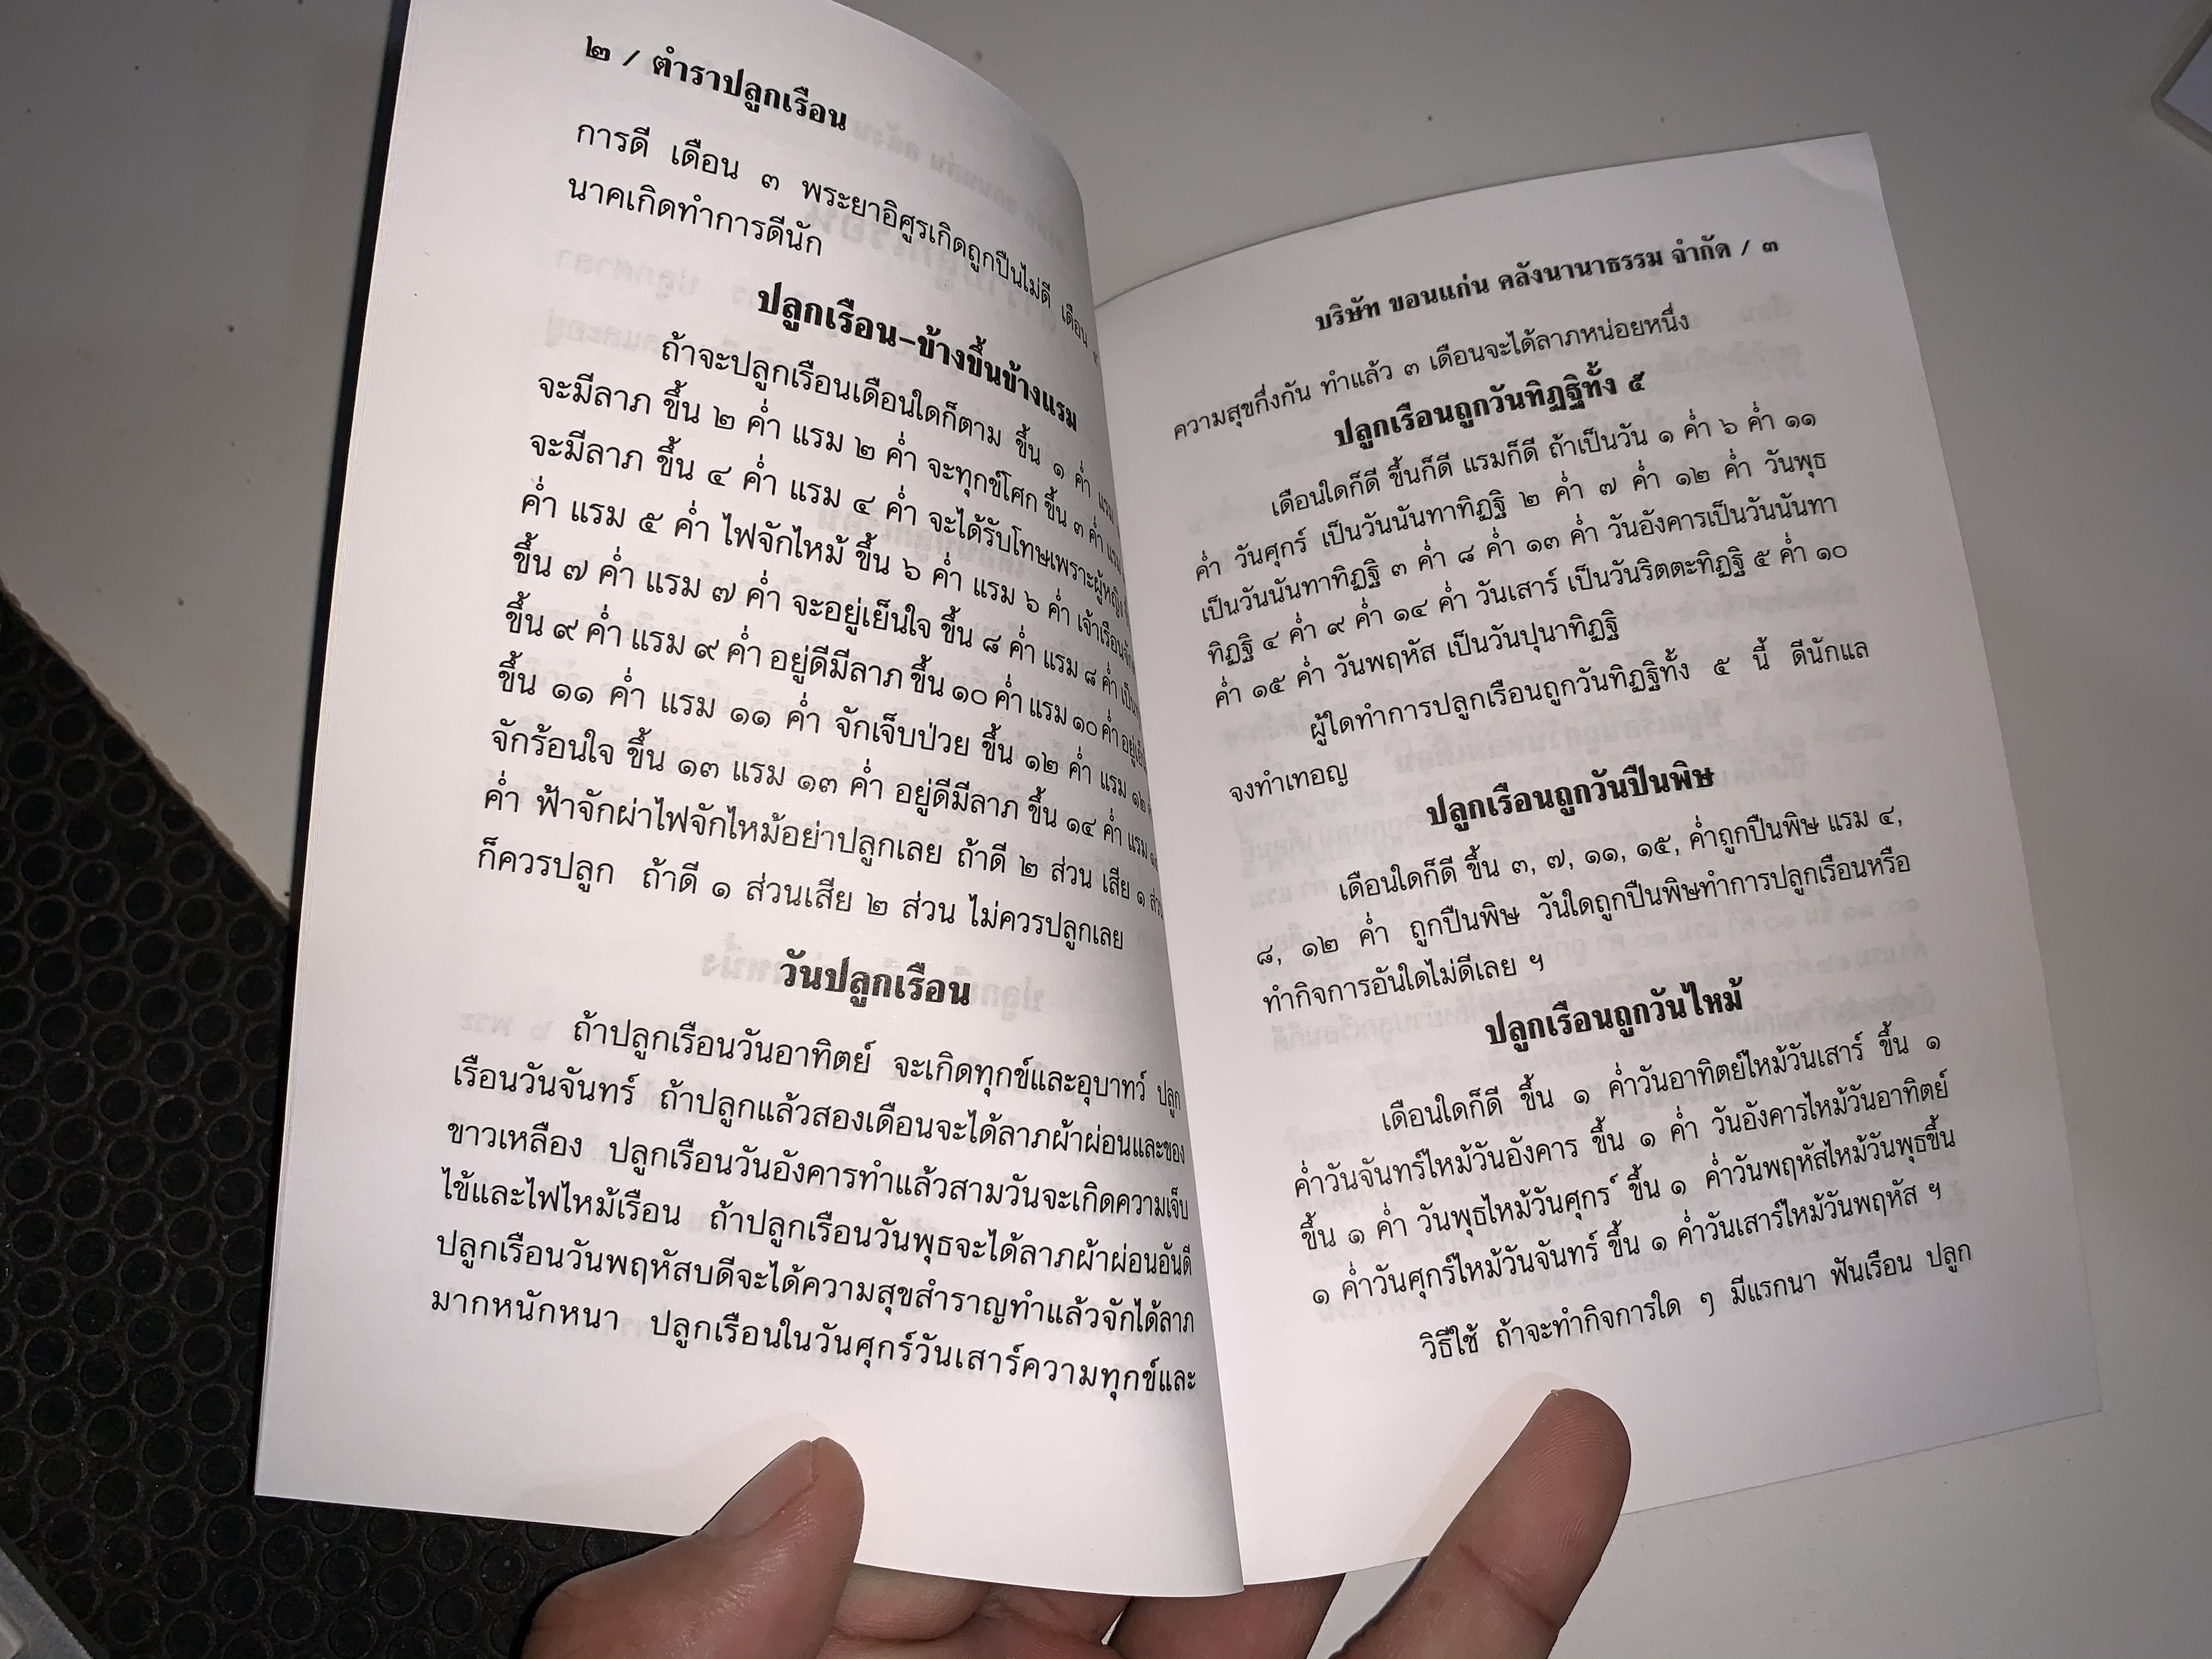 ๒ / ตำราปลูกเรือน
การดี เดือน ๓ พระยาอิศูรเกิดถูกปืนไม่ดี เดือน
นาคเกิดทำการดีนัก
ปลูกเรือน-ข้างขึ้นข้างแรม
ถ้าจะปลูกเรือนเดือนใดก็ตาม ขึ้น ๑ ค่ำ แรม
จะมีลาภ ขึ้น ๒ ค่ำ แรม ๒ ค่ำ จะทุกข์โศก ขึ้น ๓ ค่ำ แรม
จะมีลาภ ขึ้น ๔ ค่ำ แรม ๔ ค่ำ จะได้รับโทษเพราะผู้หญิง
ค่ำ แรม ๕ ค่ำ ไฟจักไหม้ ขึ้น ๖ ค่ำ แรม ๖ ค่ำ เจ้าเรือนจัก
ขึ้น ๗ ค่ำ แรม ๗ ค่ำ จะอยู่เย็นใจ ขึ้น ๘ ค่ำ แรม ๘ ค่ำ
ขึ้น ๙ ค่ำ แรม ๙ ค่ำ อยู่ดีมีลาภ ขึ้น ๑๐ ค่ำ แรม ๑๐ ค่ำ
ขึ้น ๑๑ ค่ำ แรม ๑๑ ค่ำ จักเจ็บป่วย ขึ้น ๑๒ ค่ำ แรม ๑๒
จักร้อนใจ ขึ้น ๑๓ แรม ๑๓ ค่ำ อยู่ดีมีลาภ ขึ้น ๑๔ ค่ำ แรม
ค่ำ ฟ้าจักผ่าไฟจักไหม้อย่าปลูกเลย ถ้าดี ๒ ส่วน เสีย ๑ ส่วน
ก็ควรปลูก ถ้าดี ๑ ส่วนเสีย ๒ ส่วน ไม่ควรปลูกเลย
วันปลูกเรือน
ถ้าปลูกเรือนวันอาทิตย์ จะเกิดทุกข์และอุบาทว์ ปลูก
เรือนวันจันทร์ ถ้าปลูกแล้วสองเดือนจะได้ลาภผ้าผ่อนและของ
ขาวเหลือง ปลูกเรือนวันอังคารทำแล้วสามวันจะเกิดความเจ็บ
ไข้และไฟไหม้เรือน ถ้าปลูกเรือนวันพุธจะได้ลาภผ้าผ่อนอันดี
ปลูกเรือนวันพฤหัสบดีจะได้ความสุขสำราญทำแล้วจักได้ลาภ
มากหนักหนา ปลูกเรือนในวันศุกร์วันเสาร์ความทุกข์และ
บริษัท ขอนแก่น คลังนานาธรรม จำกัด / ๓
ความสุขกึ่งกัน ทำแล้ว ๓ เดือนจะได้ลาภหน่อยหนึ่ง
ปลูกเรือนถูกวันทิฏฐิทั้ง ๕
เดือนใดก็ดี ขึ้นก็ดี แรมก็ดี ถ้าเป็นวัน ๑ ค่ำ ๖ ค่ำ ๑๑
ค่ำ วันศุกร์ เป็นวันนันทาทิฏฐิ ๒ ค่ำ ๗ ค่ำ ๑๒ ค่ำ วันพุธ
เป็นวันนันทาทิฏฐิ ๓ ค่ำ ๘ ค่ำ ๑๓ ค่ำ วันอังคารเป็นวันนันทา
ทิฏฐิ ๔ ค่ำ ๙ ค่ำ ๑๔ ค่ำ วันเสาร์ เป็นวันริตตะทิฏฐิ ๕ ค่ำ ๑๐
ค่ำ ๑๕ ค่ำ วันพฤหัส เป็นวันปุนาทิฏฐิ
ผู้ใดทำการปลูกเรือนถูกวันทิฏฐิทั้ง ๕ นี้ ดีนักแล
จงทำเทอญ
ปลูกเรือนถูกวันปืนพิษ
เดือนใดก็ดี ขึ้น ๓, ๗, ๑๑, ๑๕, ค่ำถูกปืนพิษ แรม ๔,
๘, ๑๒ ค่ำ ถูกปืนพิษ วันใดถูกปืนพิษทำการปลูกเรือนหรือ
ทำกิจการอันใดไม่ดีเลย ฯ
ปลูกเรือนถูกวันไหม้
เดือนใดก็ดี ขึ้น ๑ ค่ำวันอาทิตย์ไหม้วันเสาร์ ขึ้น ๑
ค่ำวันจันทร์ไหม้วันอังคาร ขึ้น ๑ ค่ำ วันอังคารไหม้วันอาทิตย์
ขึ้น ๑ ค่ำ วันพุธไหม้วันศุกร์ ขึ้น ๑ ค่ำวันพฤหัสไหม้วันพุธขึ้น
๑ ค่ำวันศุกร์ไหม้วันจันทร์ ขึ้น ๑ ค่ำวันเสาร์ไหม้วันพฤหัส ฯ
วิธีใช้ ถ้าจะทำกิจการใด ๆ มีแรกนา ฟันเรือน ปลูก